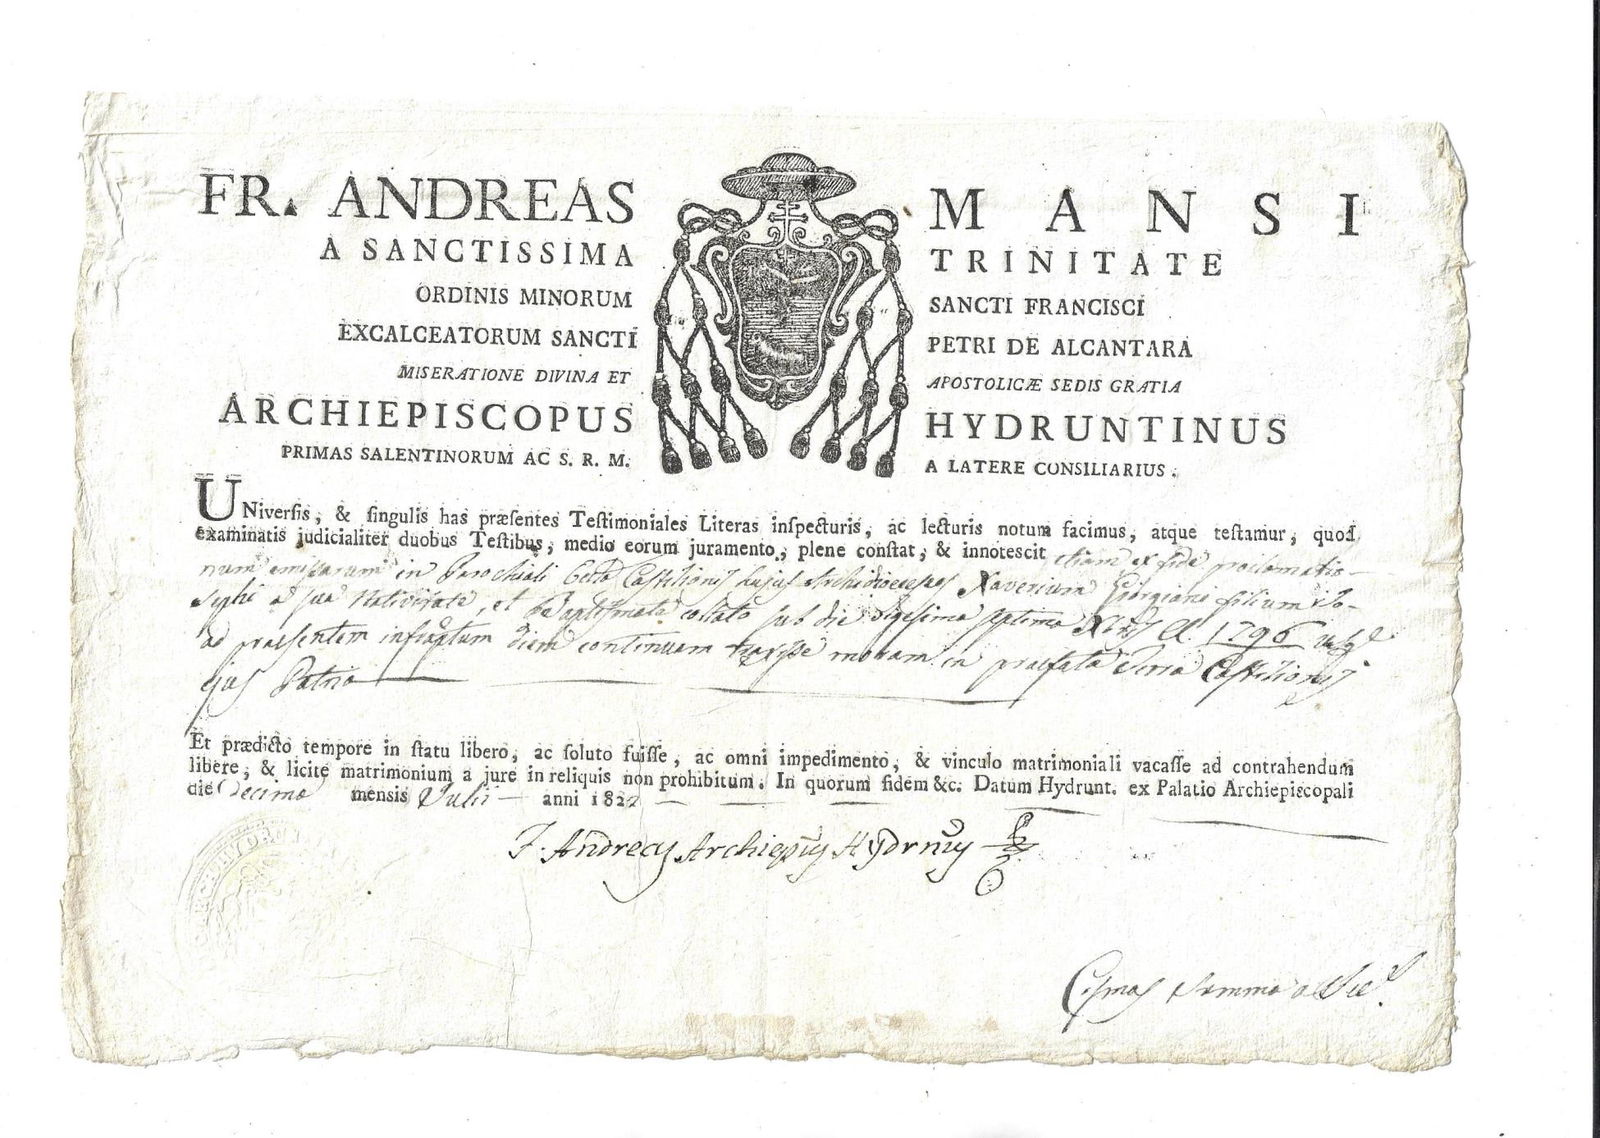 FR. ANDREAS MANSI
A SANCTISSIMA TRINITATE
ORDINIS MINORUM SANCTI FRANCISCI
EXCALCEATORUM SANCTI PETRI DE ALCANTARA
MISERATIONE DIVINA ET APOSTOLICÆ SEDIS GRATIA
ARCHIEPISCOPUS HYDRUNTINUS
PRIMAS SALENTINORUM AC S. R. M. A LATERE CONSILIARIUS.
UNiverſis, & ſingulis has præſentes Teſtimoniales Literas inſpecturis, ac lecturis notum facimus, atque teſtamur, quod
examinatis judicialiter duobus Teſtibus, medio eorum juramento, plene conſtat, & innotescit etiam ex fide proclamatio-
num emissarum in Parochiali Castilionis hujus Archidioecesis Xaverium Giorgiani filium Jo-
sephi a sua Nativitate, et Baptismate collato sub die Vigesima septima 1796
ad praesentem infraptum diem continuam traxisse moram in praefata Terra Castilionis
ejus Patria
Et prædicto tempore in ſtatu libero, ac ſoluto fuiſſe, ac omni impedimento, & vinculo matrimoniali vacaſſe ad contrahendum
libere, & licite matrimonium a jure in reliquis non prohibitum. In quorum fidem &c. Datum Hydrunt. ex Palatio Archiepiscopali
die Decima mensis Julii anni 1822
F. Andreas Archiepus Hydrnus
Cosmas Somma a Sec.